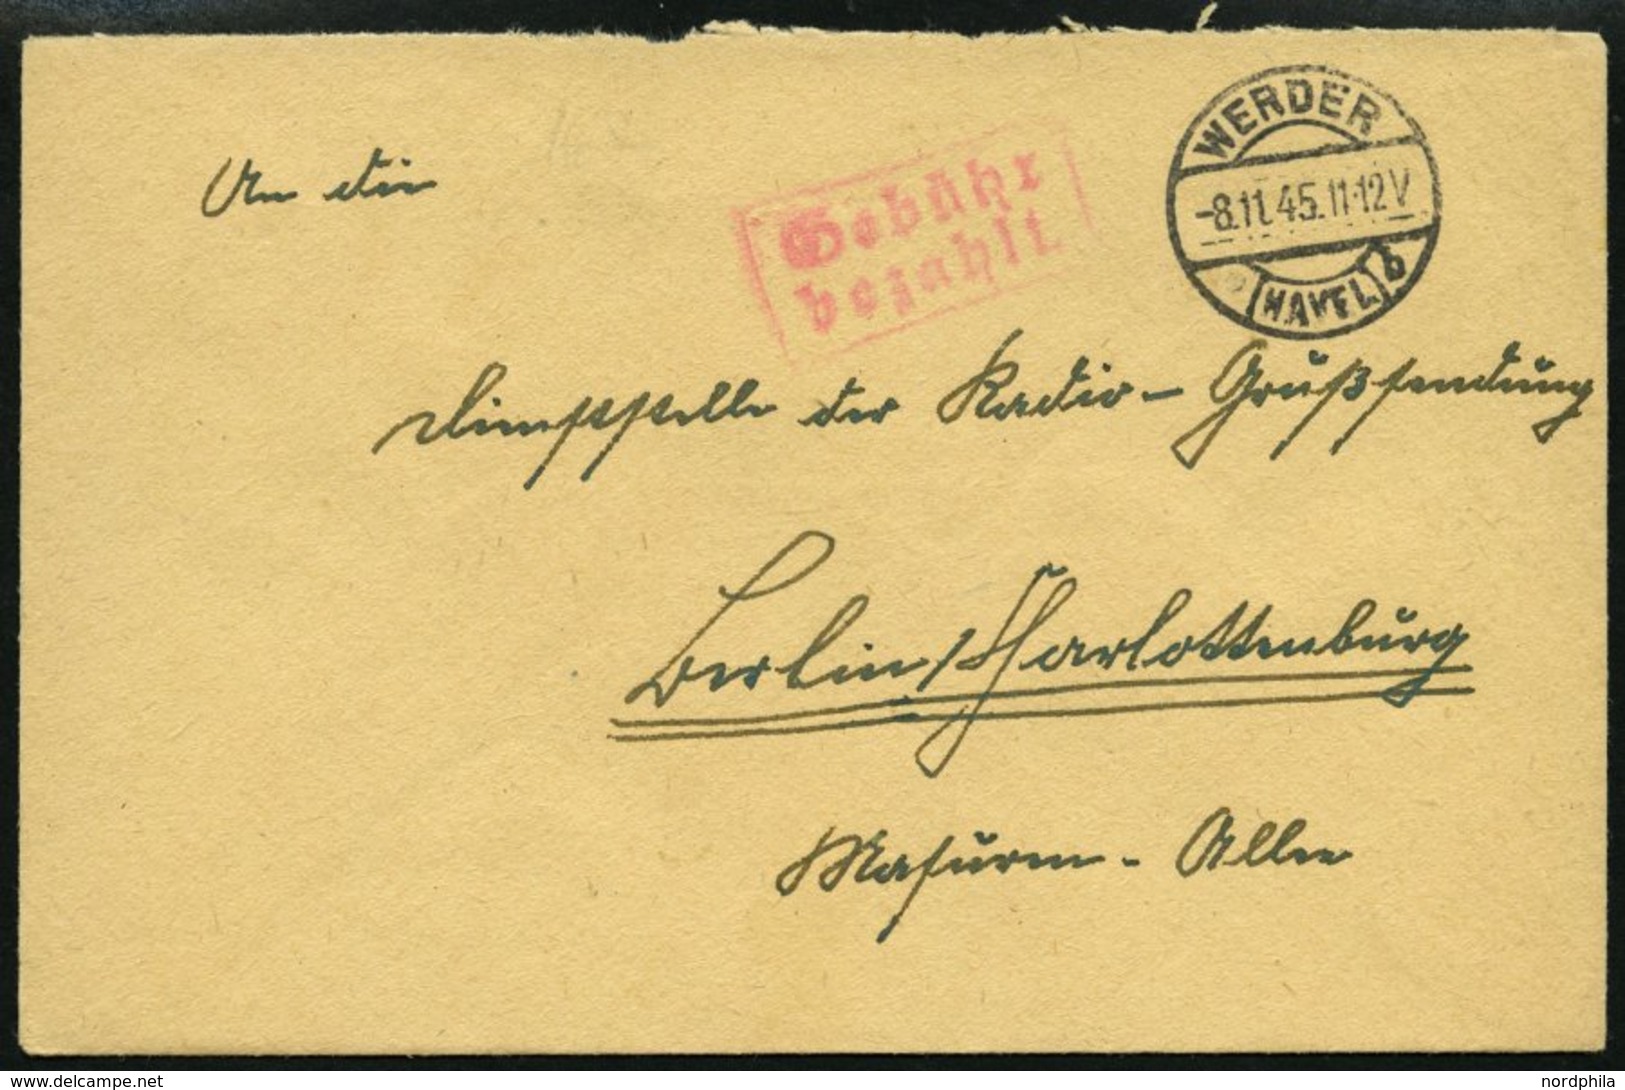 An die
Gebühr
bezahlt.
WERDER
-8.11.45.11-12V
(HAVEL) b
Dienststelle der Radio - Grußsendung
Berlin/Charlottenburg
Masuren - Allee
delcampe.net
nordphila